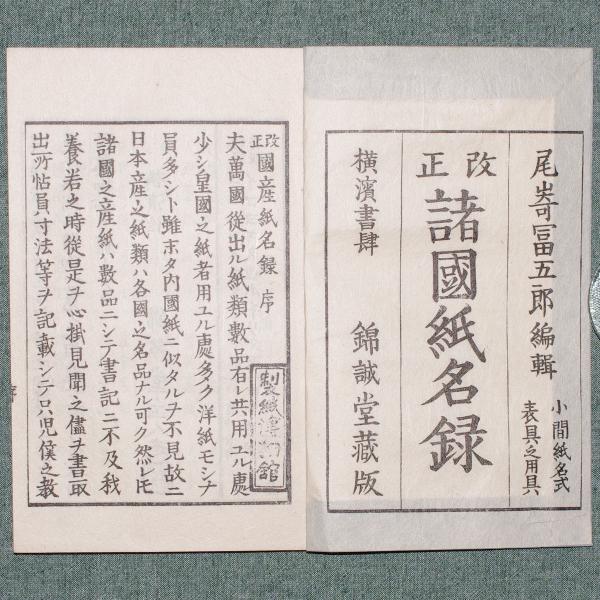 尾嵜冨五郎編輯
小間紙名式
表具之用具
改正
諸國紙名録
横濱書肆 錦誠堂藏版
改正 國産紙名録序
夫萬國従出ル紙類數品有レ共用ユル處
少シ皇國之紙者用ユル處多ク洋紙モシナ
員多シト雖未タ内國紙ニ似タルヲ不見故ニ
日本産之紙類ハ各國之名品ナル可ク然レ𪜈
諸國之産紙ハ數品ニシテ書記ニ不及我
養若之時從是ヲ心掛見聞之儘ヲ書取
出所帖員寸法等ヲ記載シテ只児僕之教
製紙博物館